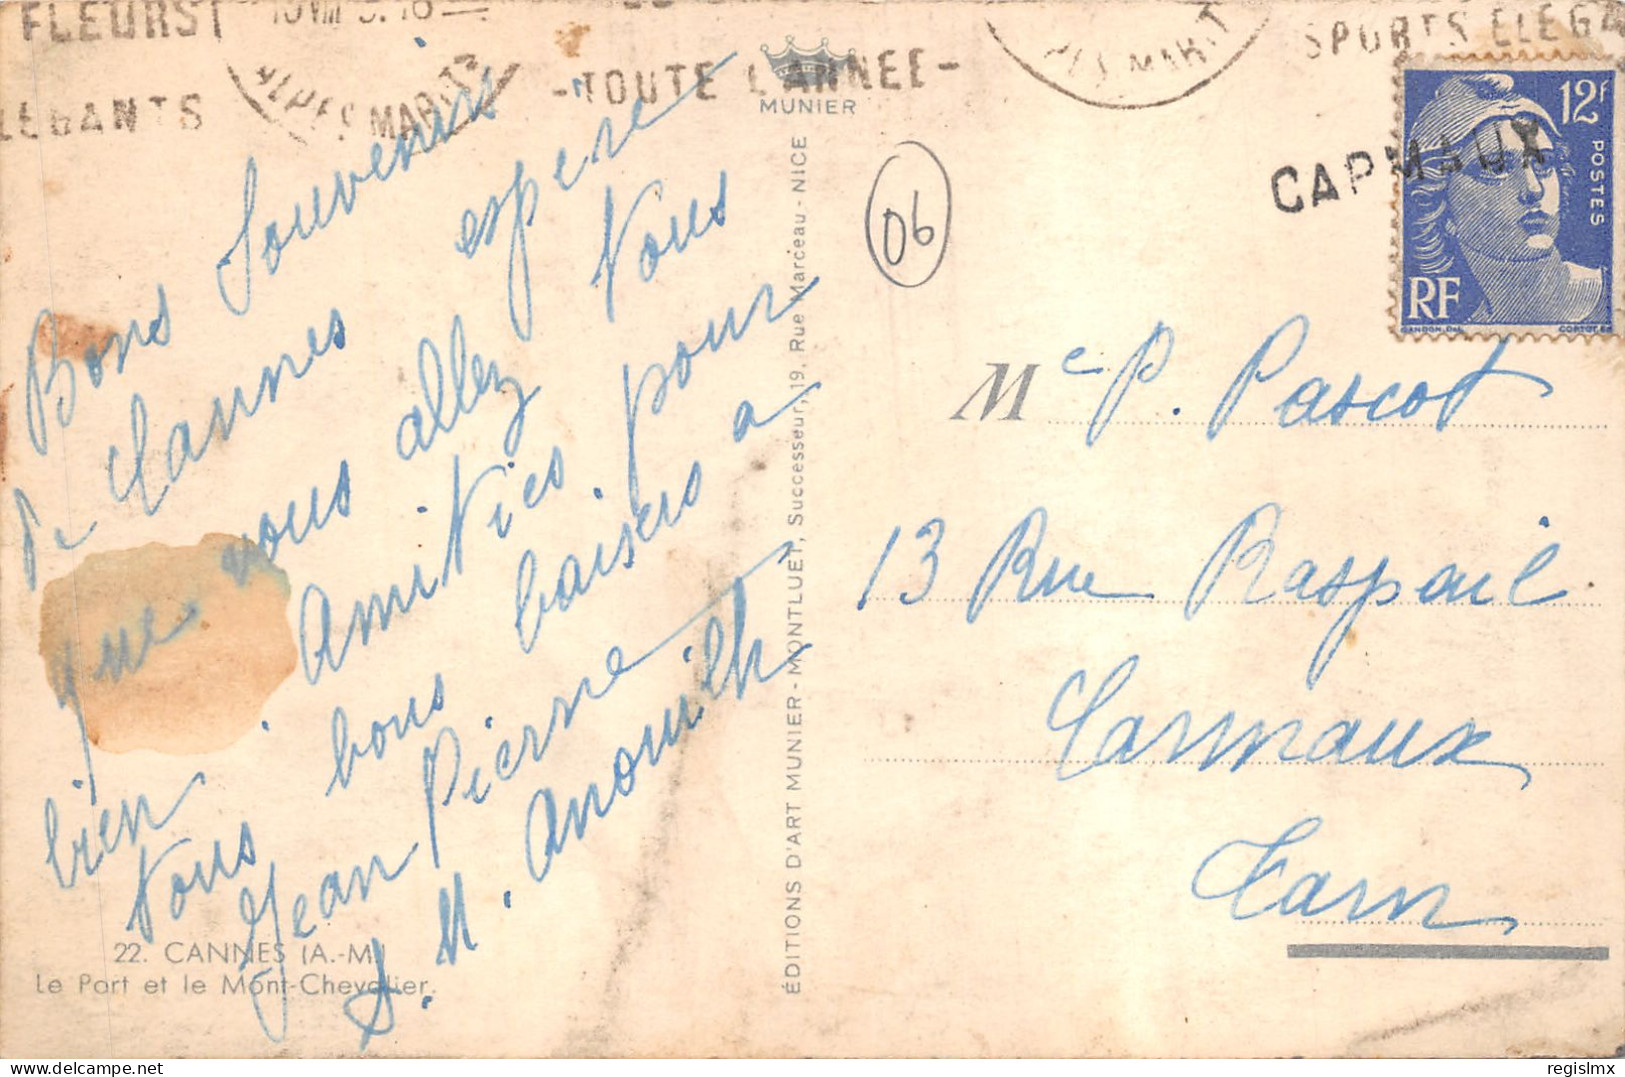 FLEURST
LEGANTS
ALPES MARITS
-TOUTE L'ANNEE-
SPORTS ELEGA
MUNIER
12F
POSTES
RF
CARMAUX
06
Bons Souvenirs
de Cannes espère
que vous allez tous
bien. Amitiés pour
tous bons baisers a
Jean Pierre
S. M. Anouilh
22. CANNES (A.-M.)
Le Port et le Mont-Chevalier.
ÉDITIONS D'ART MUNIER - MONTLUET, Successeur, 19, Rue Marceau - NICE
Me P. Pascot
13 Rue Raspail
Carmaux
Tarn
© regislmx